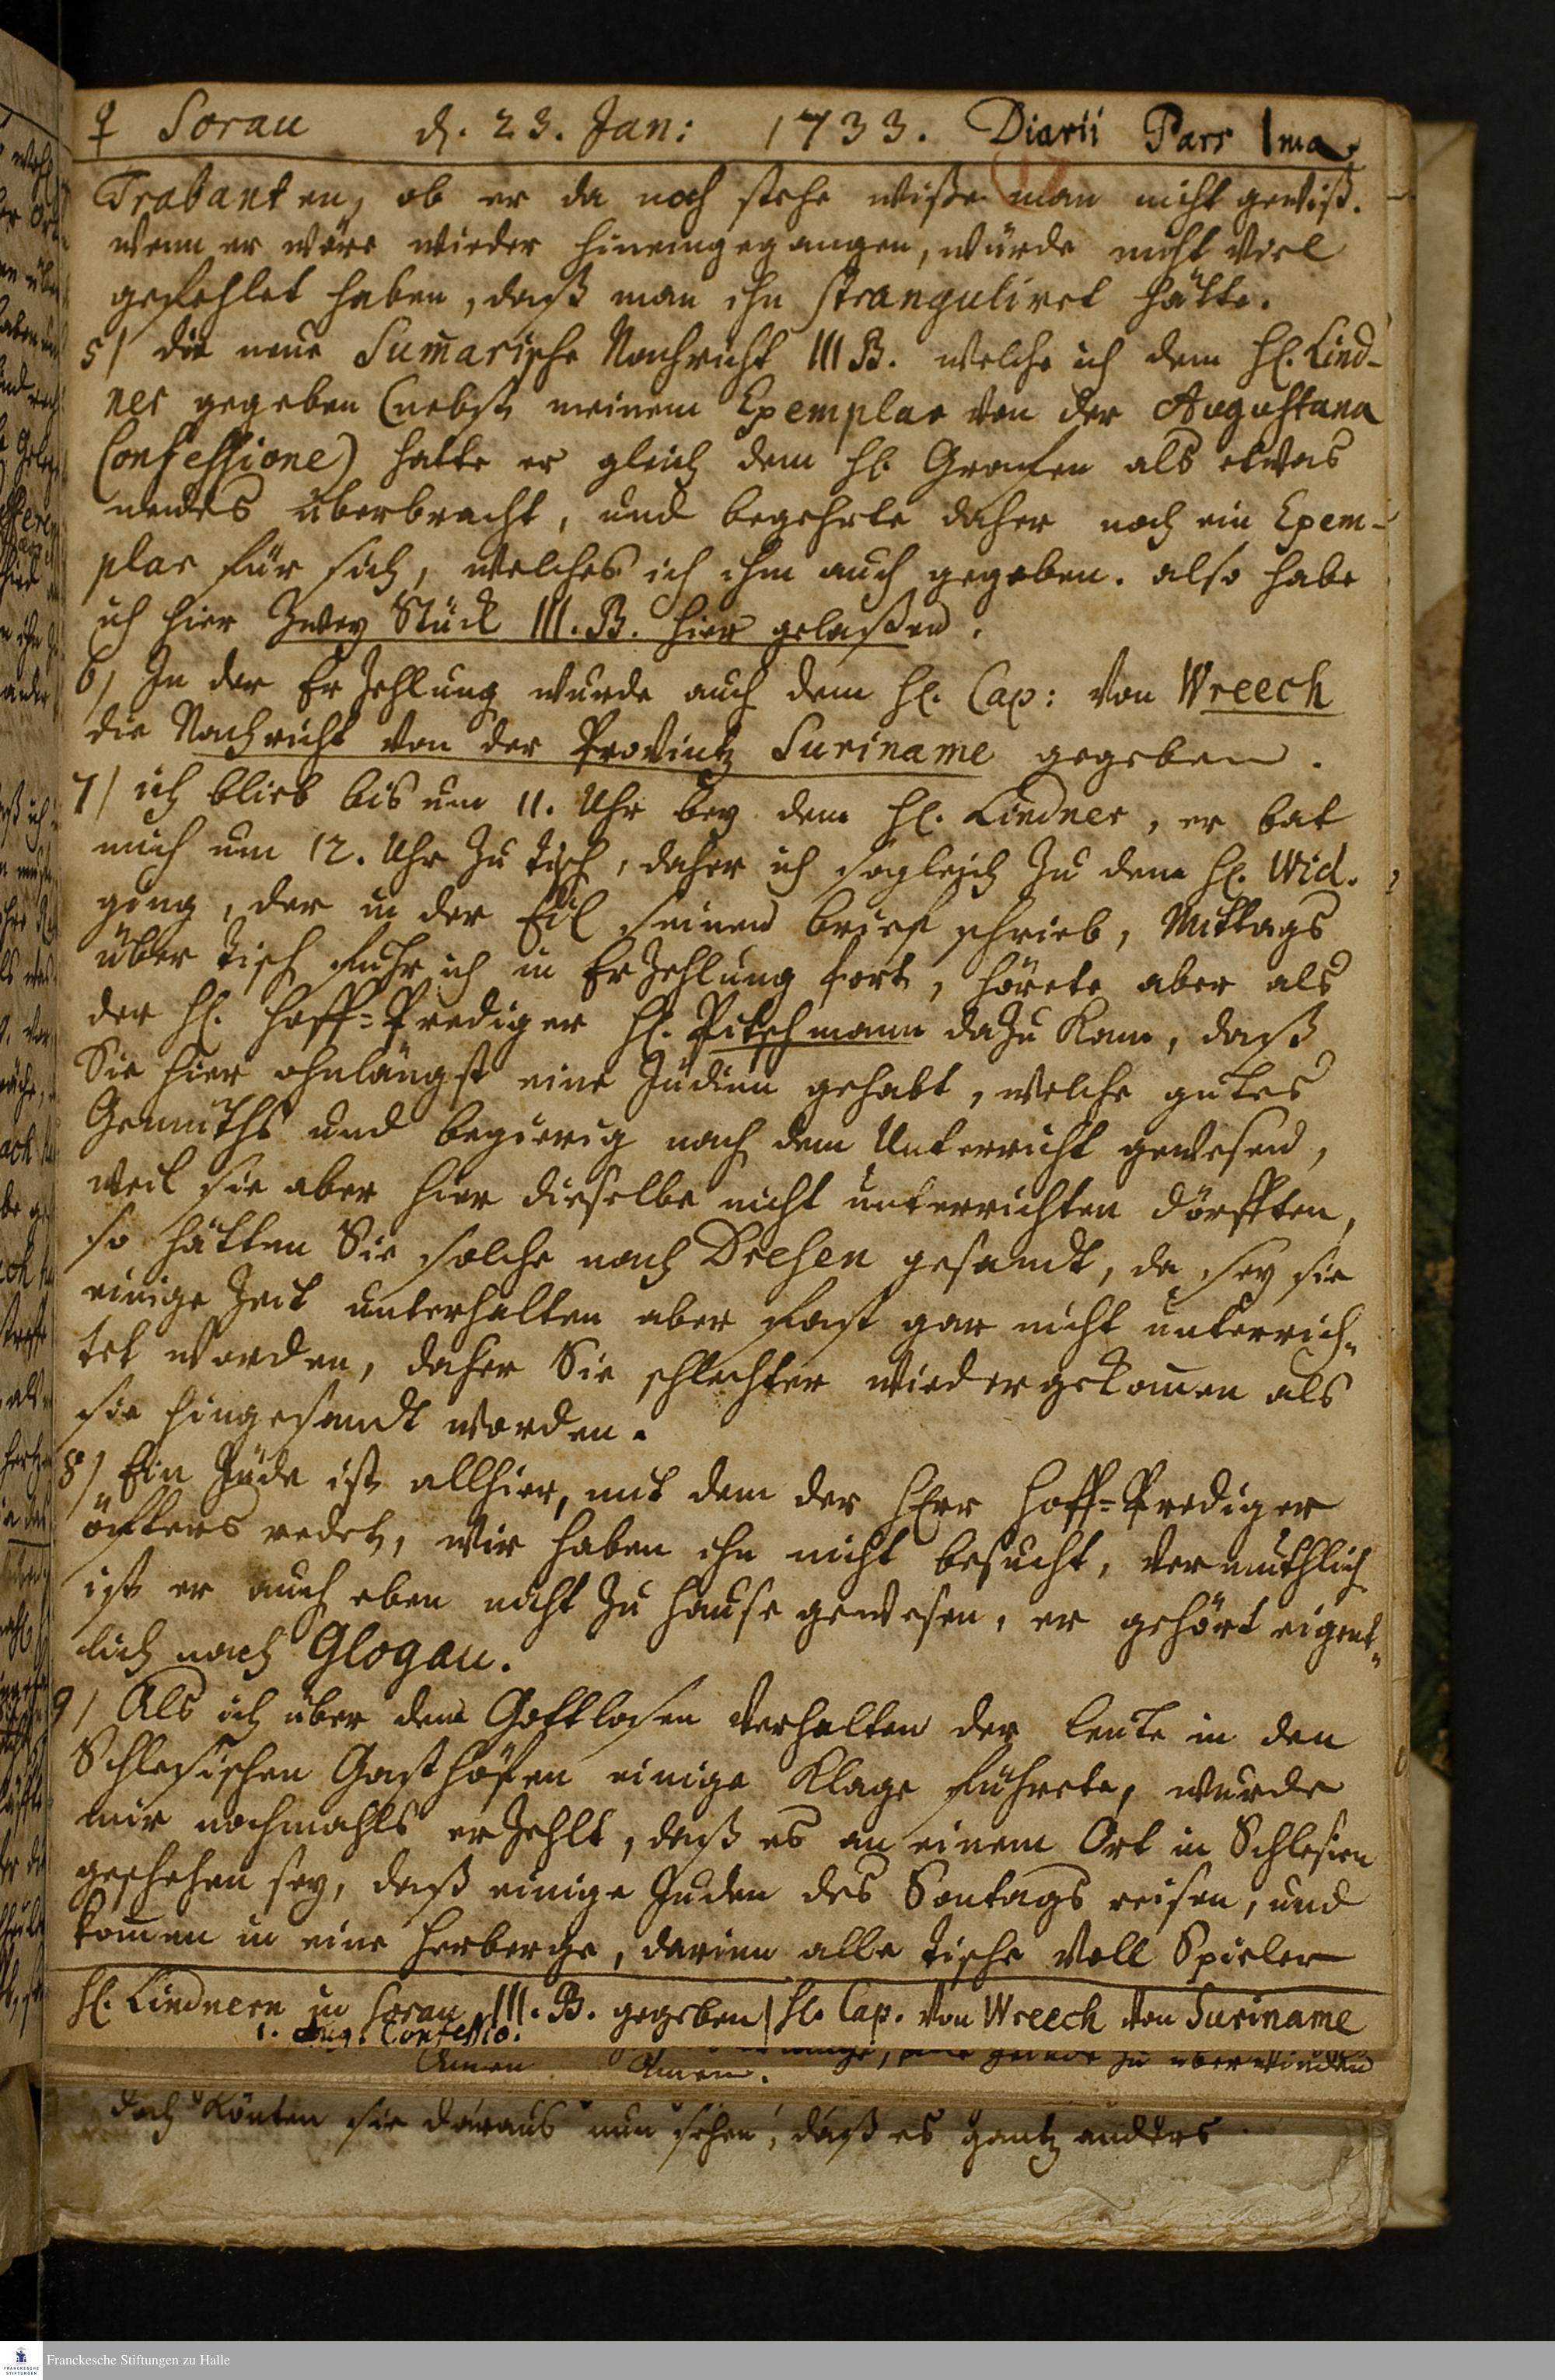 ♀ Sorau d. 23. Jan: 1733. Diarii Pars Ima
Trabanten, ob er da noch stehe wiße man nicht gewiß.
wenn er wäre wieder hineingegangen, würde nicht viel
gefehlet haben, daß man ihn stranguliret hätte.
5/ die neue Sum̄arische Nachricht III B. welche ich dem H. Lind-
ner gegeben (nebst meinem Exemplar von der Augustana
Confessione) hatte er gleich dem H. Grafen als etwas
neues überbracht, und begehrte daher noch ein Exem-
plar für sich, welches ich ihm auch gegeben. also habe
ich hier Zwey Stück III. B. hier gelaßen.
6/ In der Erzehlung wurde auch dem H. Cap: von Wreech
die Nachricht von der Provintz Suriname gegeben.
7/ ich blieb bis um 11. Uhr bey dem H. Lindner, er bat
mich um 12. Uhr zu tisch, daher ich sogleich zu dem H. Wid.
ging, der in der Eil seinen brief schrieb, Mittags
über tisch fuhr ich in Erzehlung fort, hörete aber als
der H. Hoff-Prediger H. Pitschmann dazu kam, daß
Sie hier ohnlängst eine Jüdinn gehabt, welche gutes
Gemüths und begierig nach dem Unterricht gewesen,
weil sie aber hier dieselbe nicht unterrichten dörfften,
so hätten Sie solche nach Dresen gesandt, da sey sie
einige Zeit unterhalten aber fast gar nicht unterrich-
tet worden, daher Sie schlechter wiedergekom̄en als
sie hingesandt worden.
8/ Ein Jude ist allhier, mit dem der HErr Hoff-Prediger
öffters redet, wir haben ihn nicht besucht, vermuthlich
ist er auch eben nicht zu Hause gewesen, er gehört eigent-
lich nach Glogau.
9/ Als ich über dem Gottlosen Verhalten der leute in den
Schlesischen Gasthöfen einige Klage führete, wurde
mir nochmahls erzehlt, daß es an einem Ort in Schlesien
geschehen sey, daß einige Juden des Sontags reisen, und
kom̄en in eine Herberge, darinn alle tische voll Spieler
H. Lindnern in Sorau III. B. gegeben / H. Cap. von Wreech von Suriname
1. Aug. Confessio.
Amen Amen. zu überwinden
doch könten sie daraus nun sehen, daß es gantz anders
Franckesche Stiftungen zu Halle